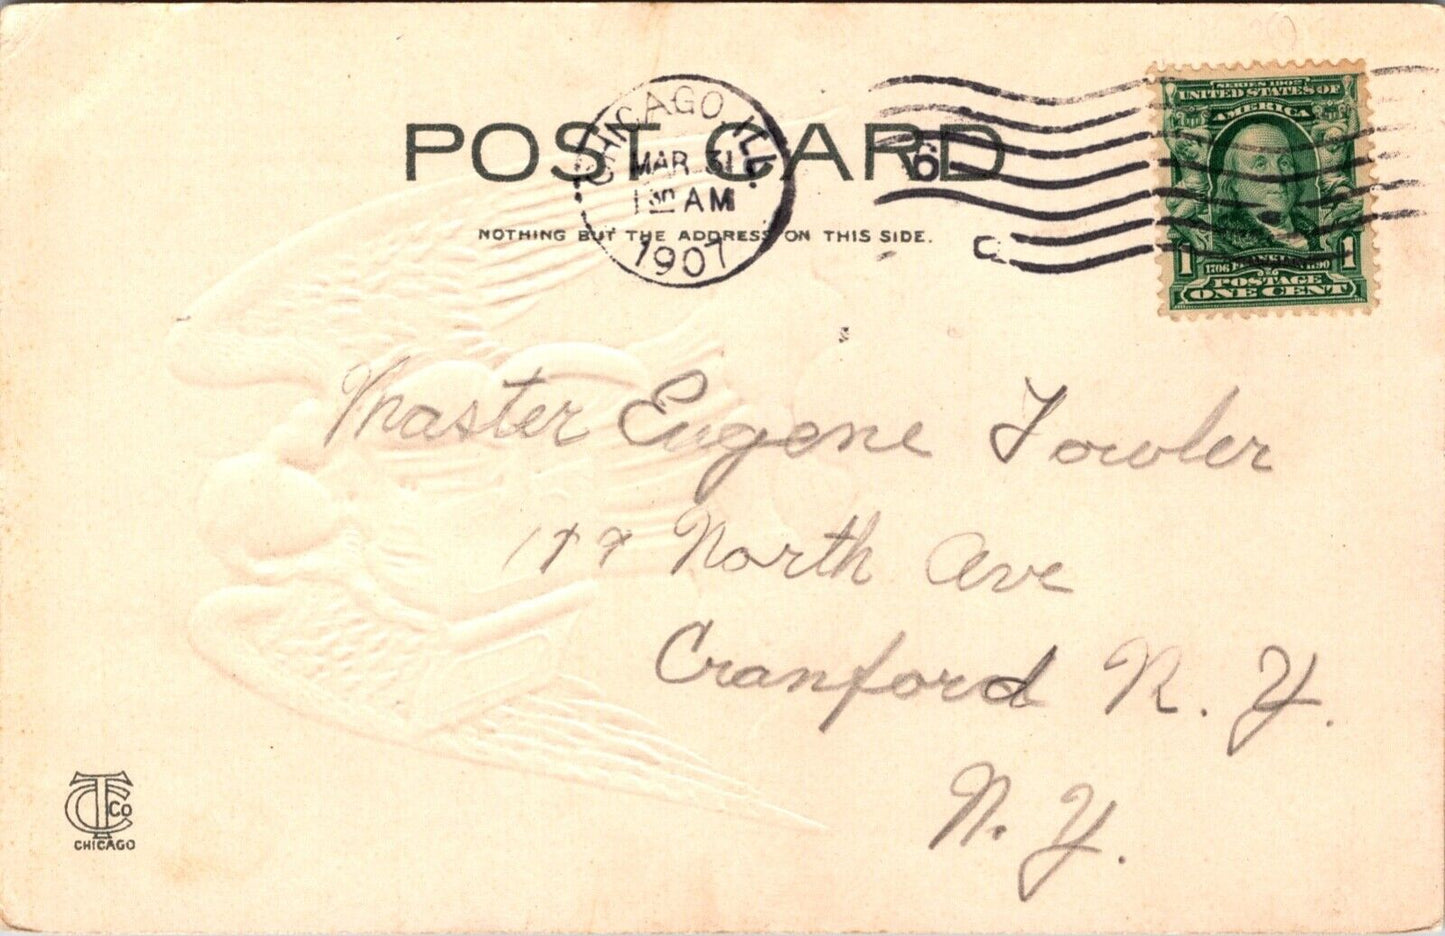 POST CARD
NOTHING BUT THE ADDRESS ON THIS SIDE.
CHICAGO, ILL.
MAR 31
1 30 AM
1907
6
C
SERIES 1902
UNITED STATES OF
AMERICA
1 1
1706 FRANKLIN 1790
POSTAGE
ONE CENT
Master Eugene Fowler
North Ave
Cranford N. Y.
N. Y.
TC Co
CHICAGO